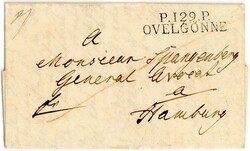 P.129.P.
OVELGÖNNE
A
Monsieur Spangenberg
General Avocat
a
Hamburg